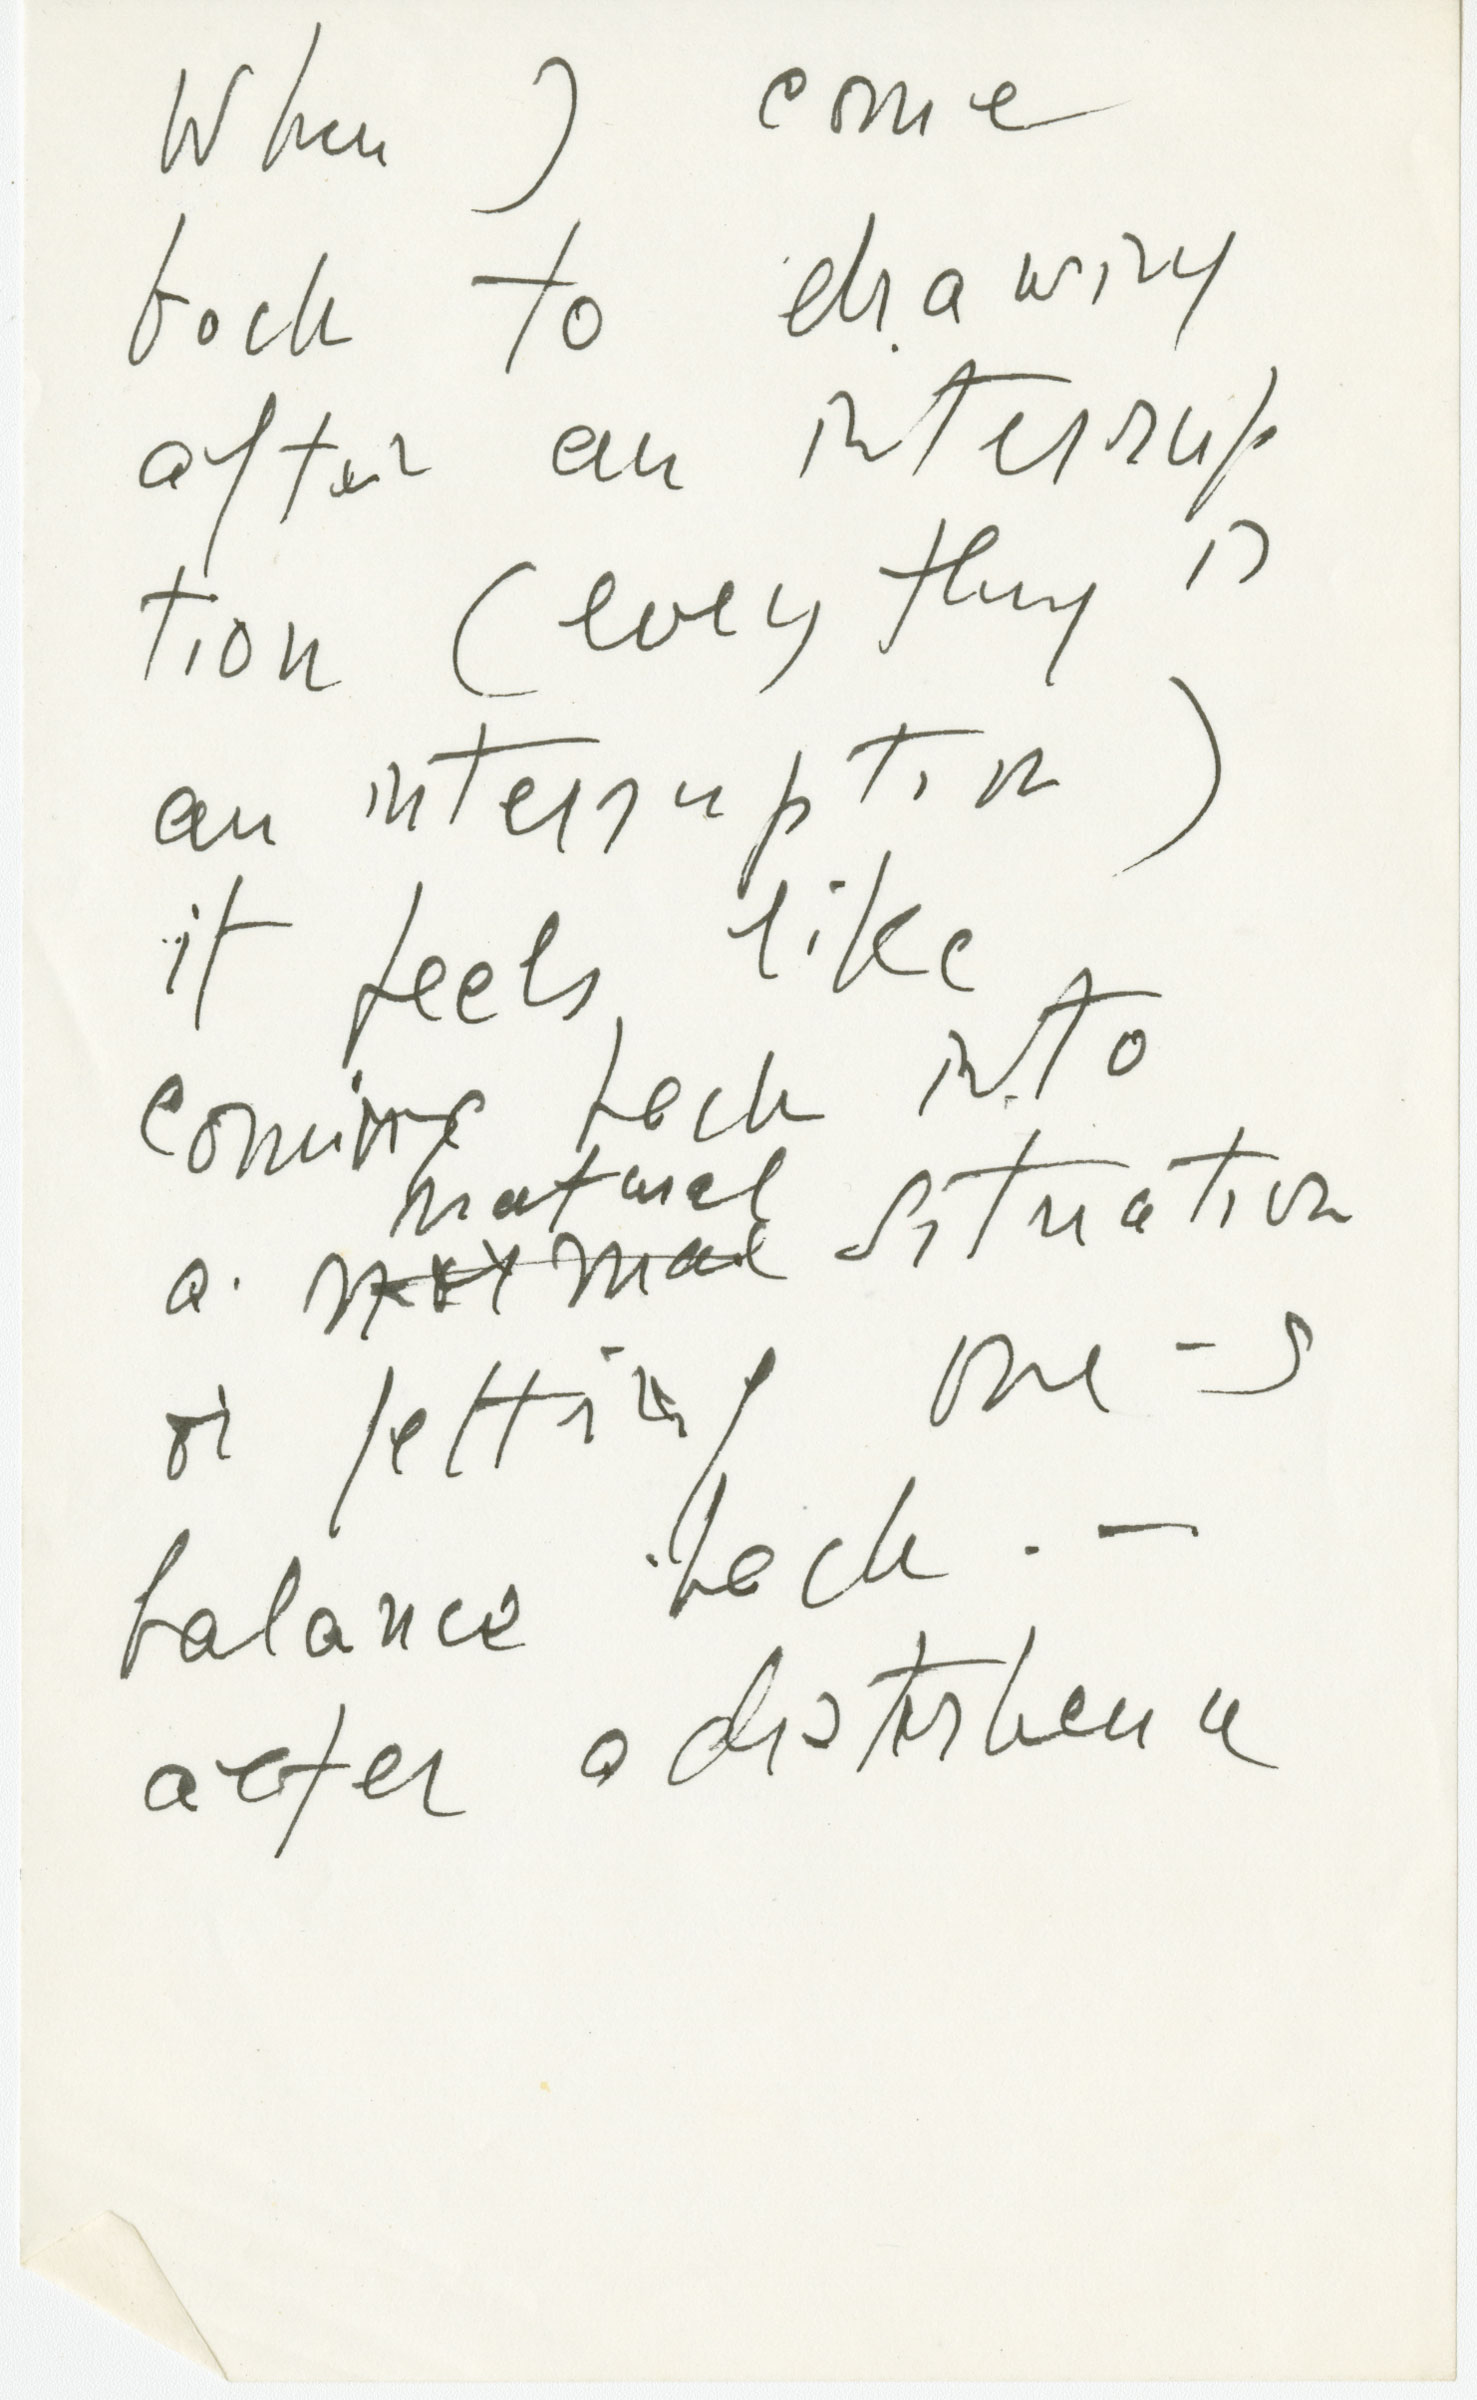 When I come
back to drawing
after an interrup
tion (everything is
an interruption)
it feels like
coming back into
natural
a normal situation
or getting one-s
balance back. —
after a disturbance